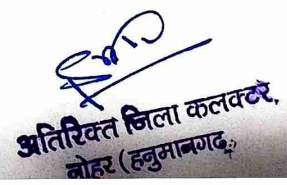 अतिरिक्त जिला कलक्टर,
नोहर (हनुमानगढ़)